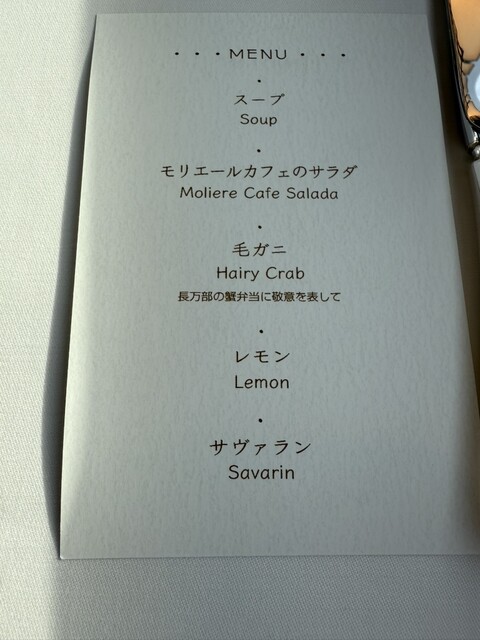 ・・・MENU・・・
・
スープ
Soup
・
モリエールカフェのサラダ
Moliere Cafe Salada
・
毛ガニ
Hairy Crab
長万部の蟹弁当に敬意を表して
・
レモン
Lemon
・
サヴァラン
Savarin